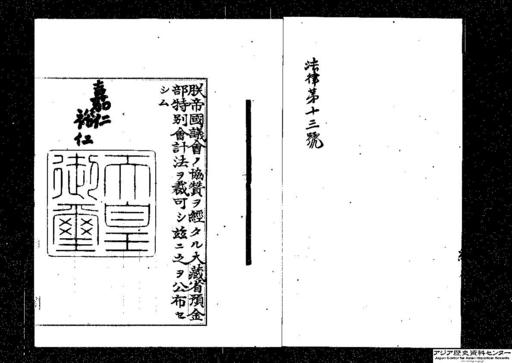 法律第十三號
朕帝國議會ノ協贊ヲ經タル大藏省預金
部特別會計法ヲ裁可シ玆ニ之ヲ公布セ
シム
嘉仁
裕仁
天皇
御璽
アジア歴史資料センター
Japan Center for Asian Historical Records